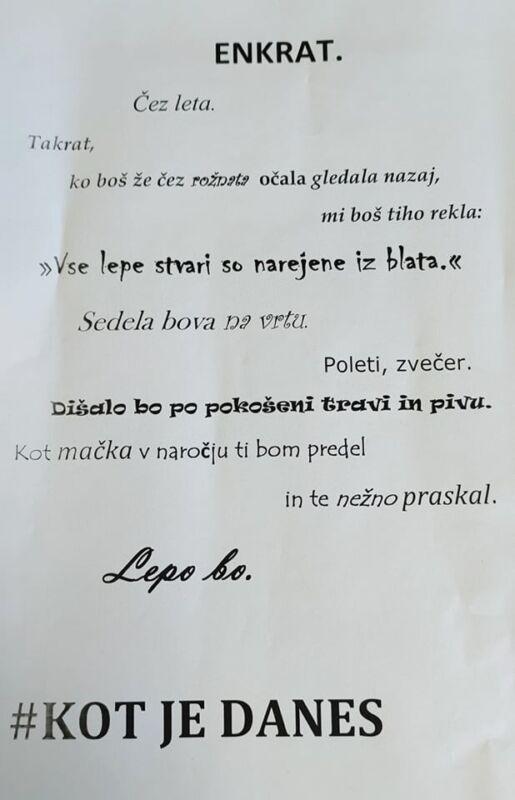 ENKRAT.
Čez leta.
Takrat,
ko boš že čez rožnata očala gledala nazaj,
mi boš tiho rekla:
»Vse lepe stvari so narejene iz blata.«
Sedela bova na vrtu.
Poleti, zvečer.
Dišalo bo po pokošeni travi in pivu.
Kot mačka v naročju ti bom predel
in te nežno praskal.
Lepo bo.
#KOT JE DANES